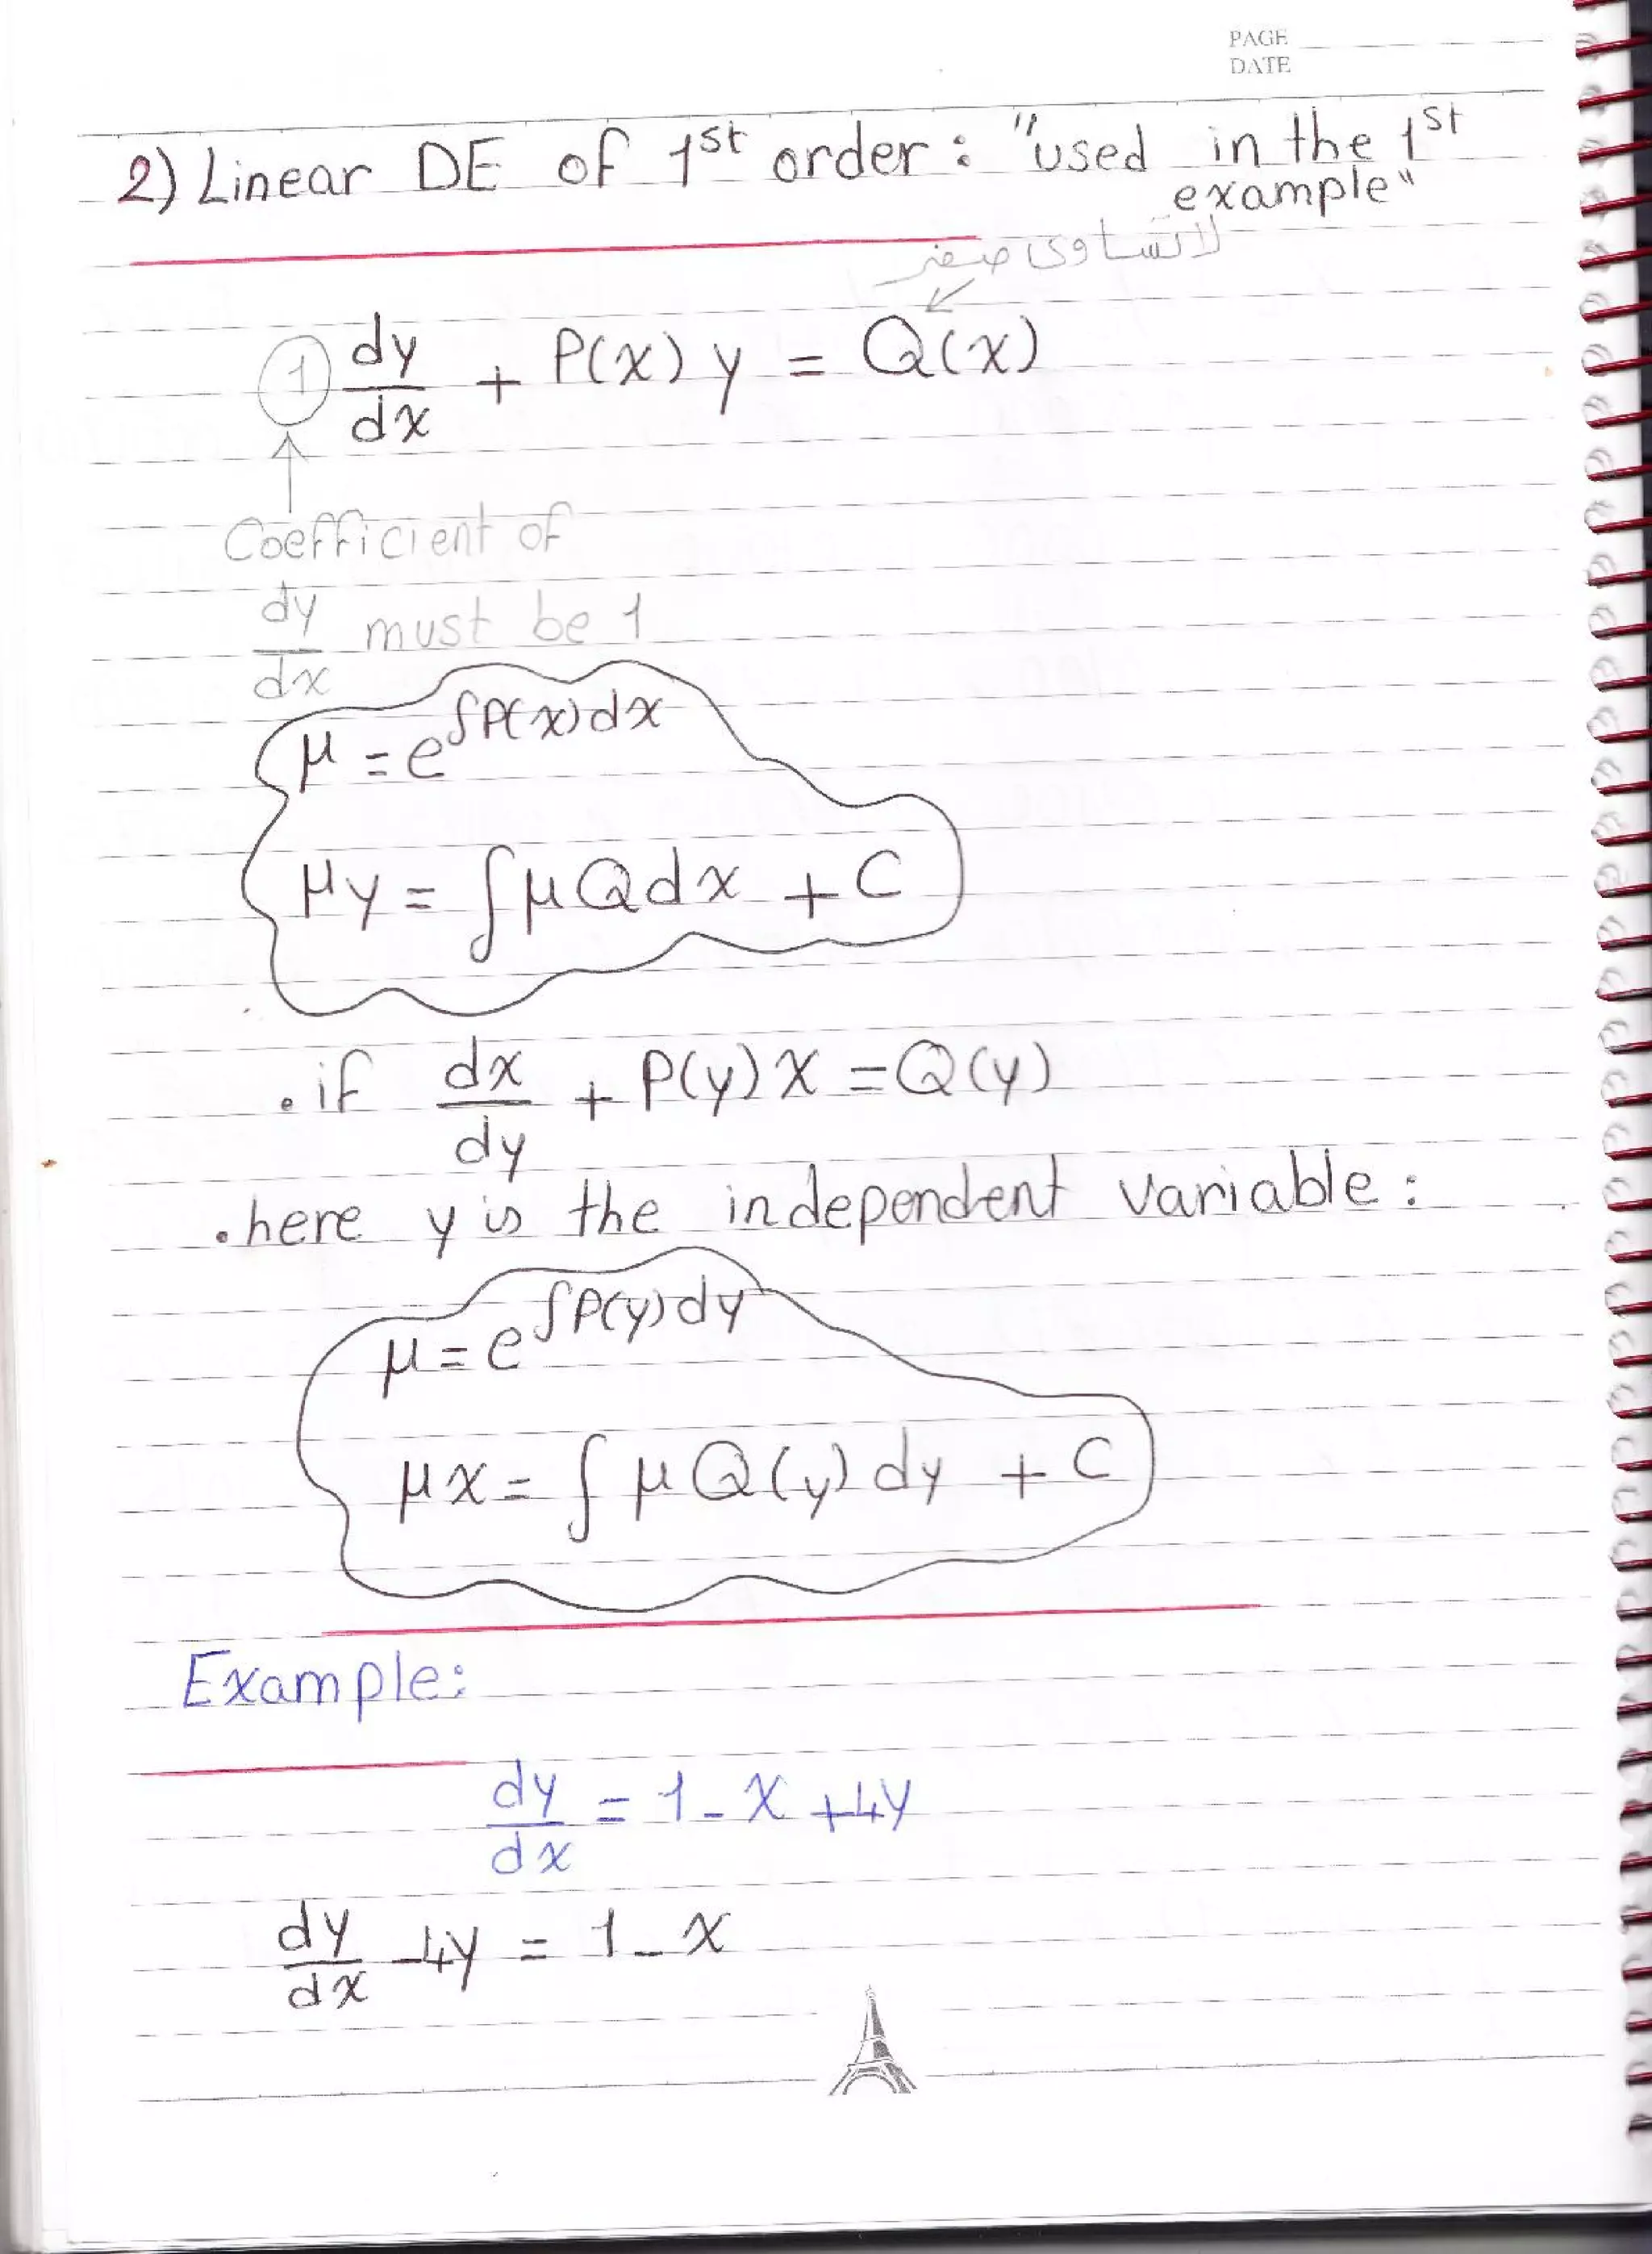 PAGE
DATE
2) Linear DE of 1st order: "used in the 1st
example"
لا تساوى صفر
1 dy/dx + P(x) y = Q(x)
Coefficient of
dy/dx must be 1
μ = e^∫P(x)dx
μy = ∫μQdx + C
. if dx/dy + P(y) x = Q(y)
. here y is the independent variable:
μ = e^∫P(y)dy
μx = ∫ μ Q(y) dy + C
Example:
dy/dx = 1 - x + 4y
dy/dx - 4y = 1 - x